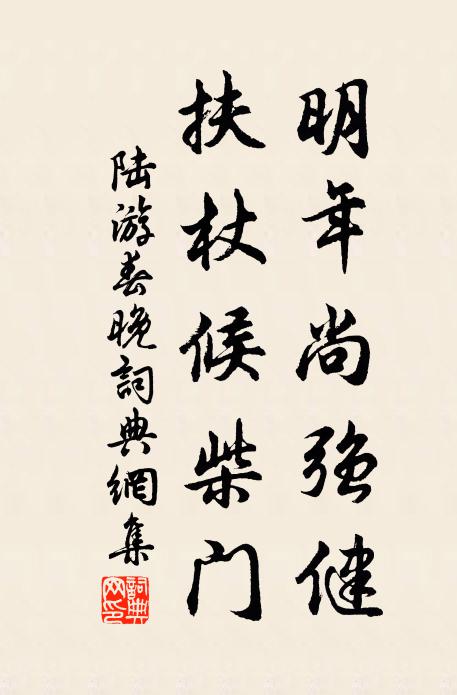 明年尚强健
扶杖候柴门
陆游春晚詞典網集
詞典网印